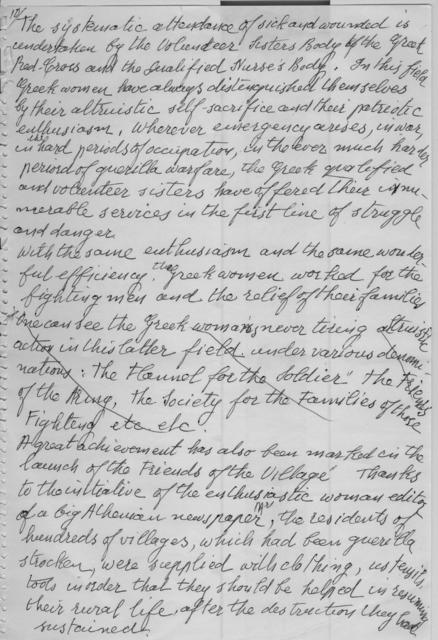 12/
The systematic attendance of sick and wounded is
undertaken by the Volunteer Sisters Body of the Greek
Red-Cross and the Qualified Nurse's Body. In this field
Greek women have always distinguished themselves
by their altruistic self-sacrifice and their patriotic
enthusiasm. Wherever emergency arises, in war,
in the hard periods of occupation, in the ever much harder
period of guerilla warfare, the Greek qualified
and volunteer sisters have offered their innu-
merable services in the first line of struggle
and danger.
With the same enthusiasm and the same wonder-
ful efficiency, the Greek women worked for the
fighting men and the relief of their families
One can see the Greek woman's never tiring altruistic
action in this latter field under various denomi
nations: The Flannel for the Soldier" The Friends
of the Army, The Society for the Families of those
Fighting etc etc.
A great achievement has also been marked in the
launch of the Friends of the Village Thanks
to the initiative of the enthusiastic woman editor
of a big Athenian newspaper, the residents of
hundreds of villages, which had been guerilla
strocken, were supplied with clothing, ustensils,
tools in order that they should be helped in resuming
their rural life after the destruction they have
sustained.